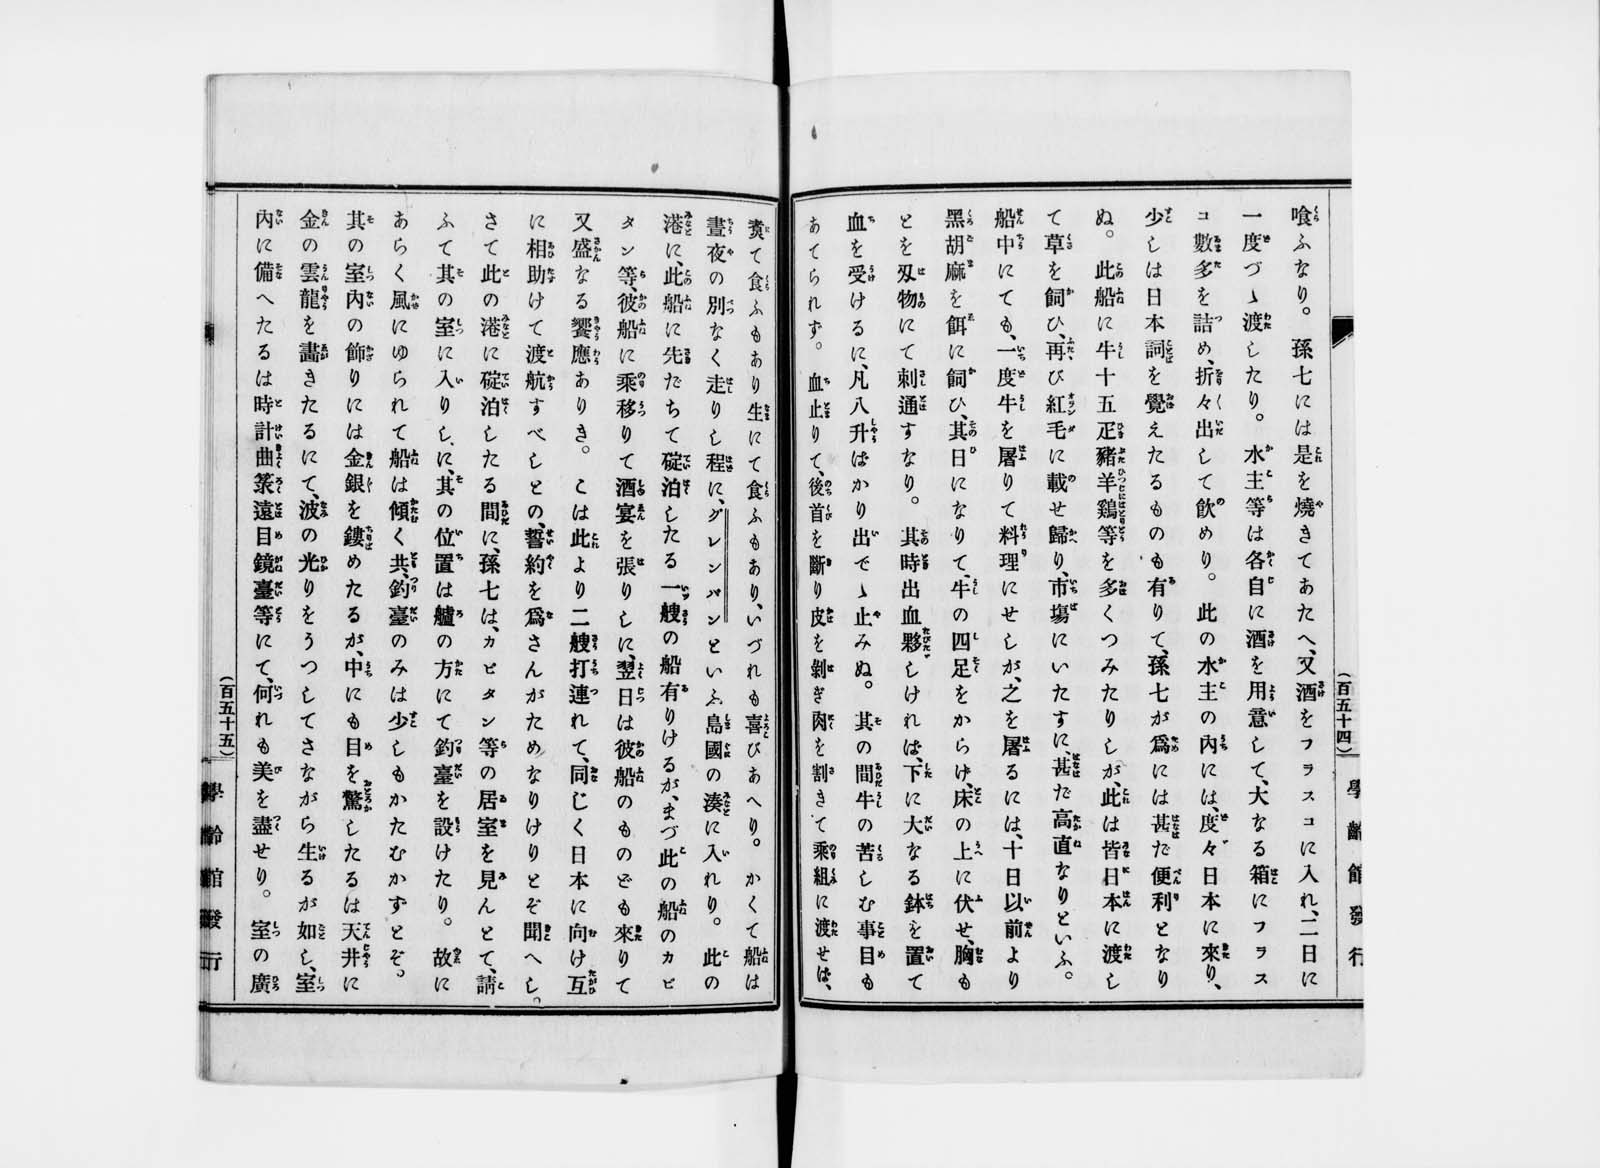 喰ふなり。孫七には是を燒きてあたへ、又酒をフラスコに入れ、二日に
一度づゝ渡したり。水主等は各自に酒を用意して、大なる箱にフラス
コ數多を詰め、折々出して飮めり。此の水主の內には、度々日本に來り、
少しは日本詞を覺えたるものも有りて、孫七が爲には甚だ便利となり
ぬ。此船に牛十五疋豬羊鷄等を多くつみたりしが、此は皆日本に渡し
て草を飼ひ、再び紅毛に載せ歸り、市場にいたすに、甚だ高直なりといふ。
船中にても、一度牛を屠りて料理にせしが、之を屠るには、十日以前より
黑胡麻を餌に飼ひ、其日になりて、牛の四足をからげ、床の上に伏せ、胸も
とを刄物にて刺通すなり。其時出血夥しければ、下に大なる鉢を置て
血を受けるに、凡八升ばかり出でゝ止みぬ。其の間牛の苦しむ事目も
あてられず。血止りて、後首を斷り皮を剝ぎ肉を割きて乘組に渡せば、
(百五十四)
學齡館發行
煑て食ふもあり生にて食ふもあり、いづれも喜びあへり。かくて船は
晝夜の別なく走りし程に、グレンバンといふ島國の湊に入れり。此の
港に、此船に先だちて碇泊したる一艘の船有りけるが、まづ此の船のカピ
タン等、彼船に乘移りて酒宴を張りしに、翌日は彼船のものども來りて
又盛なる饗應ありき。こは此より二艘打連れて、同じく日本に向け互
に相助けて渡航すべしとの、誓約を爲さんがためなりけりとぞ聞へし。
さて此の港に碇泊したる間に、孫七は、カピタン等の居室を見んとて、請
ふて其の室に入りしに、其の位置は艫の方にて釣臺を設けたり。故に
あらく風にゆられて船は傾く共、釣臺のみは少しもかたむかずとぞ。
其の室內の飾りには金銀を鏤めたるが、中にも目を驚したるは天井に
金の雲龍を畫きたるにて、波の光りをうつしてさながら生るが如し、室
內に備へたるは時計曲彔遠目鏡臺等にて、何れも美を盡せり。室の廣
(百五十五)
學齡館發行